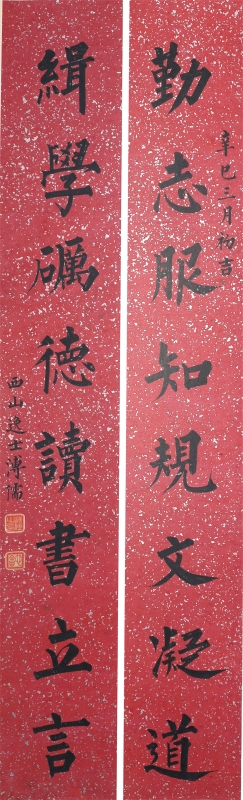 辛巳三月初吉
勤志服知規文凝道
緝學礪德讀書立言
西山逸士溥儒